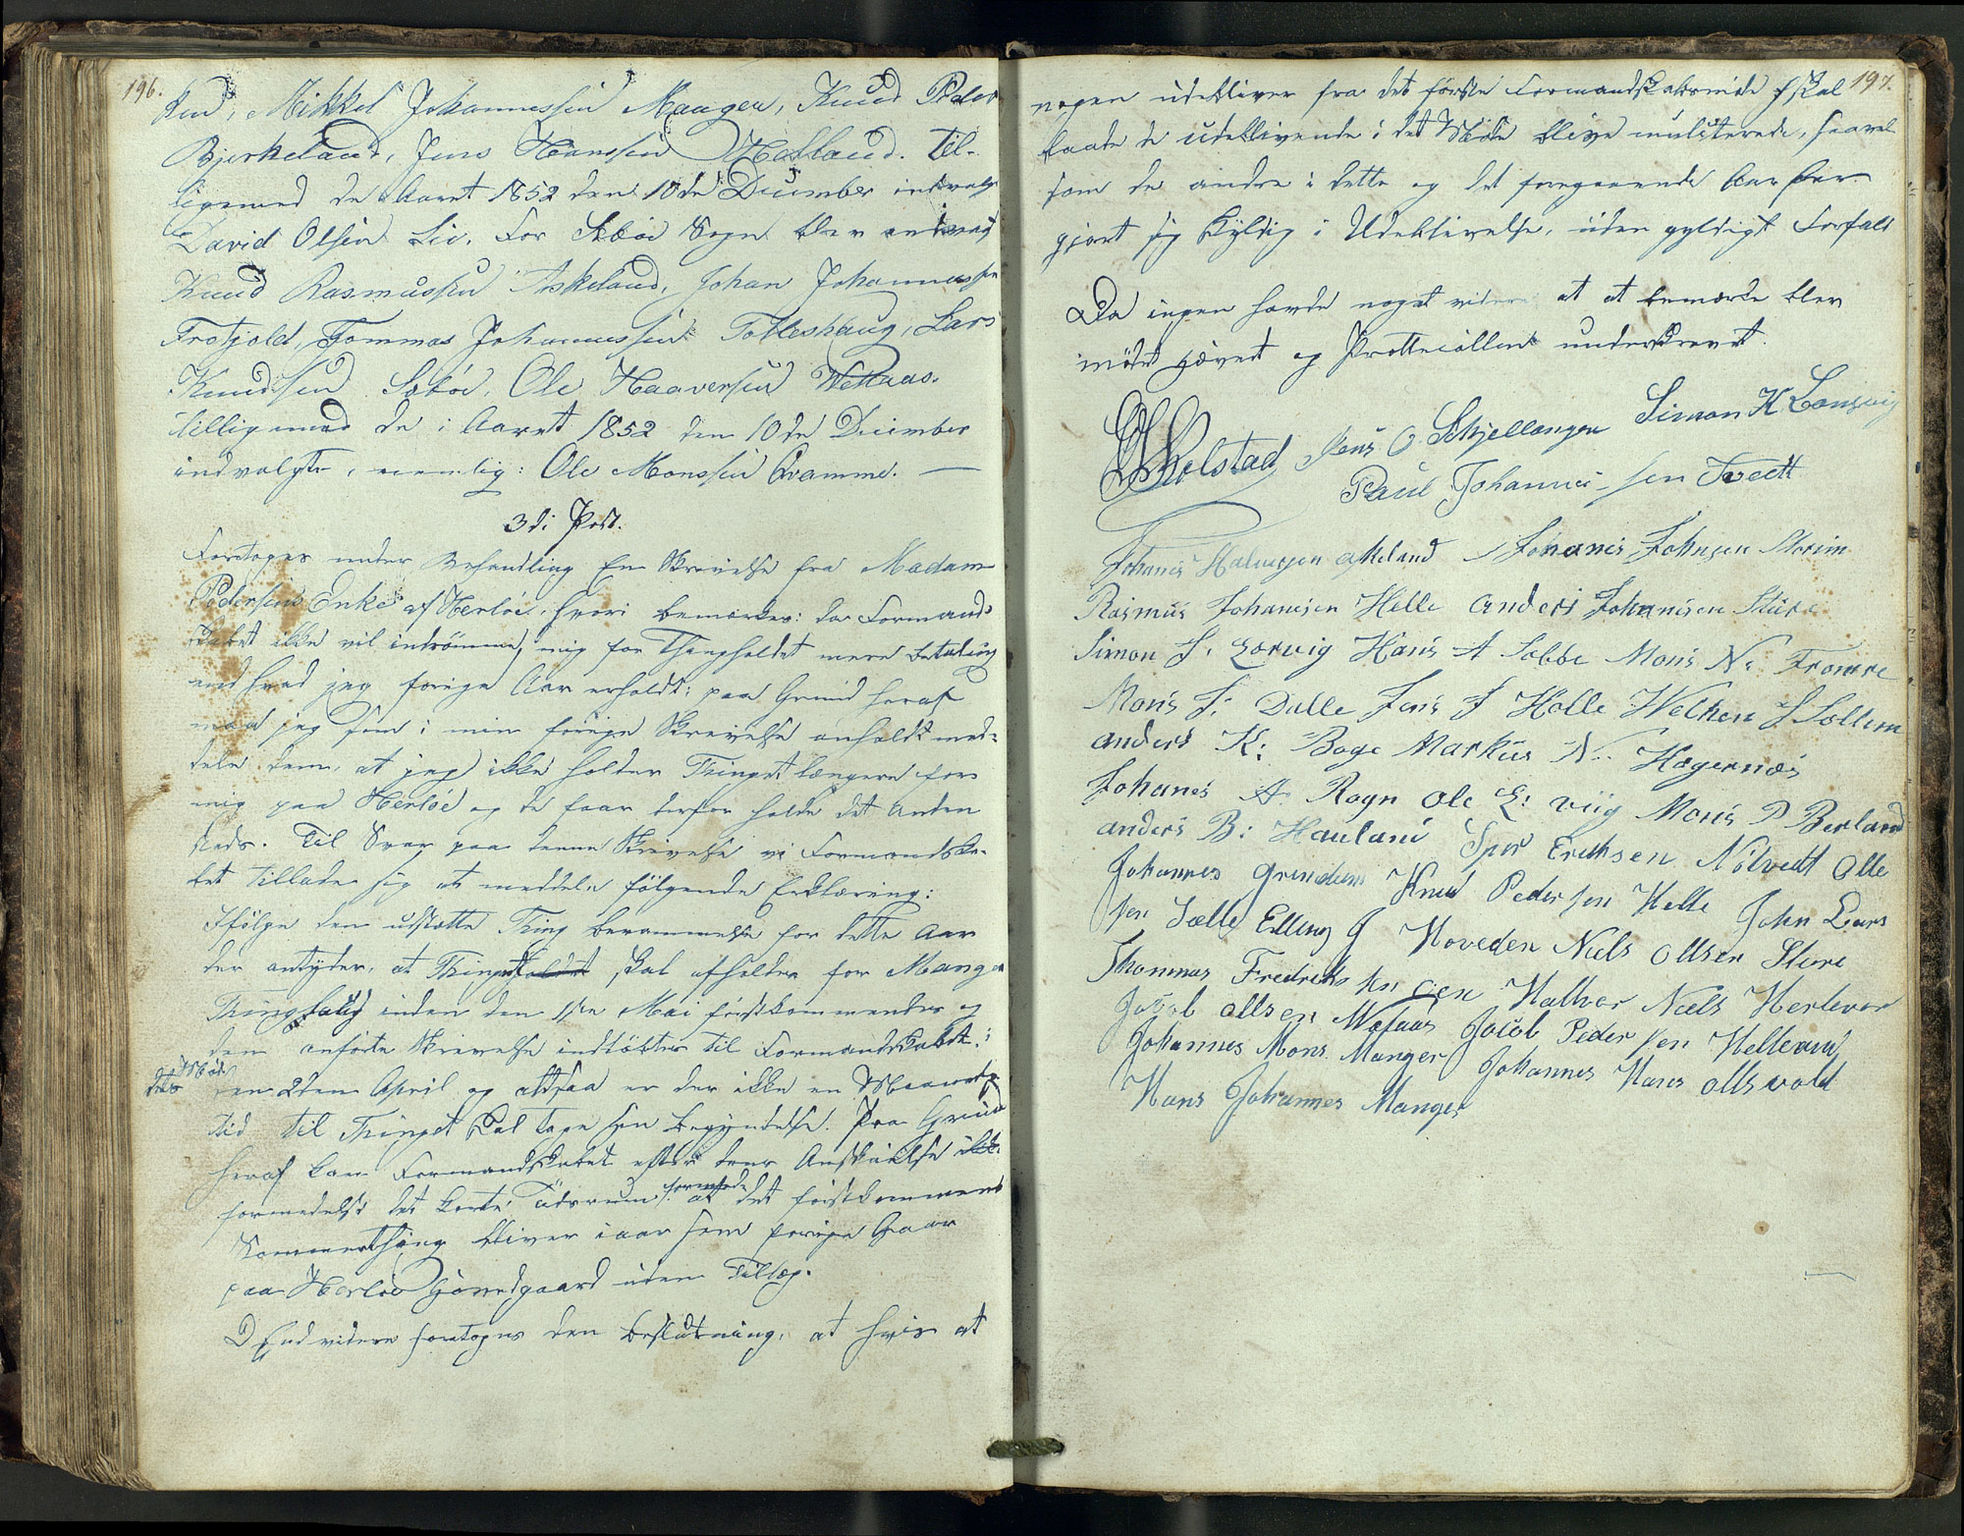 196.
sen, Mikkel Johannessen Manger, Knud Peder
Bjerkeland, Jens Hanssen Halland. Til-
ligemed de Aaret 1852 den 10de December indvalgte
David Olsen Lie. For Sæbøe Sogn blev
Knud Rasmussen Askeland, Johan Johannessen
Frotjold, Tommas Johannessen Tobleshaug, Lars
Knudsen Sæbøe, Ole Haaversen
tilligemed de i Aaret 1852 den 10de December
indvalgte, nemlig: Ole Monssen Qvamme. —
3die Post.
Foretoges under Behandling En Skrivelse fra Madam
Pedersens Enke af Herløe, hvori bemærkes: da Formand-
skabet ikke vil indrømme mig for Thingholdet mere betaling
end hvad jeg forrige Aar erholdt; paa Grund heraf
maa jeg som i min forrige Skrivelse anholdt med-
dele dem, at jeg ikke holder Thinget længere for
mig paa Herløe og de faar derfor holde det Anden
steds. Til Svar paa denne Skrivelse vi Formandska-
bet tillade sig at meddele følgende Erklæring:
Ifølge den udsatte Thing berammelse for dette Aar
der antyder, at Thinget skal afholdes for Manger
Thinglaug inden den 1ste Mai førstkommende og
den anførte Skrivelse indløbter til Formandskabet
dets Møde
den 2den April og altsaa er der ikke en Maaneds
tid til Thinget skal tage sin begyndelse. Paa Grund
heraf kan Formandskabet efter dens Anskuelse ikke
formedelst det korte Tidsrum at det førstkommende
Sommerthing bliver iaar som forrige Aar
paa Herløe Gjæstgaard uden Tillæg.
Endvidere foretoges den beslutning, at hvis at
197.
nogen udebliver fra det første Formandskabsmøde skal
baade de udeblivende i det Møde blive mulkterede, saavel
som de andre i dette og det foregaaende Aar har
gjort sig skyldig i Udeblivelse, uden gyldigt Forfald
Da ingen havde noget videre at at bemærke blev
mødet hævet og Protocollen underskrevet.
Kolstad Jens O Schjellanger Simon K Longvig
Paul Johannessen Tvedt
Johanes Halvorsen Askeland Johanes Johnsen Morim
Rasmus Johanisen Helle Anders Johannisen Sture
Simon J. Lorvig Hans A Sobbe Mons N. Fromre
Mons J: Dalle Jens J Holle Welken S Sollem
anders K: Boge Markus N. Hagernæs
Johanes A Rogn Ole L: viig Mons P Berland
anders B: Hauland Sjur Eriksen Nøtvedt Olle
Johannes Grindem Knud Pedersen Helle John Lars
sen Sælle Elling J Hoveden Niels Ollsen Sture
Thommas Fredriksen Øen Halver Niels Herlevær
Jacob Ollsen Wefaas Jacob Pedersen Helleaug
Johannes Mons Manger Johannes Hans Ollsvold
Hans Johannes Manger